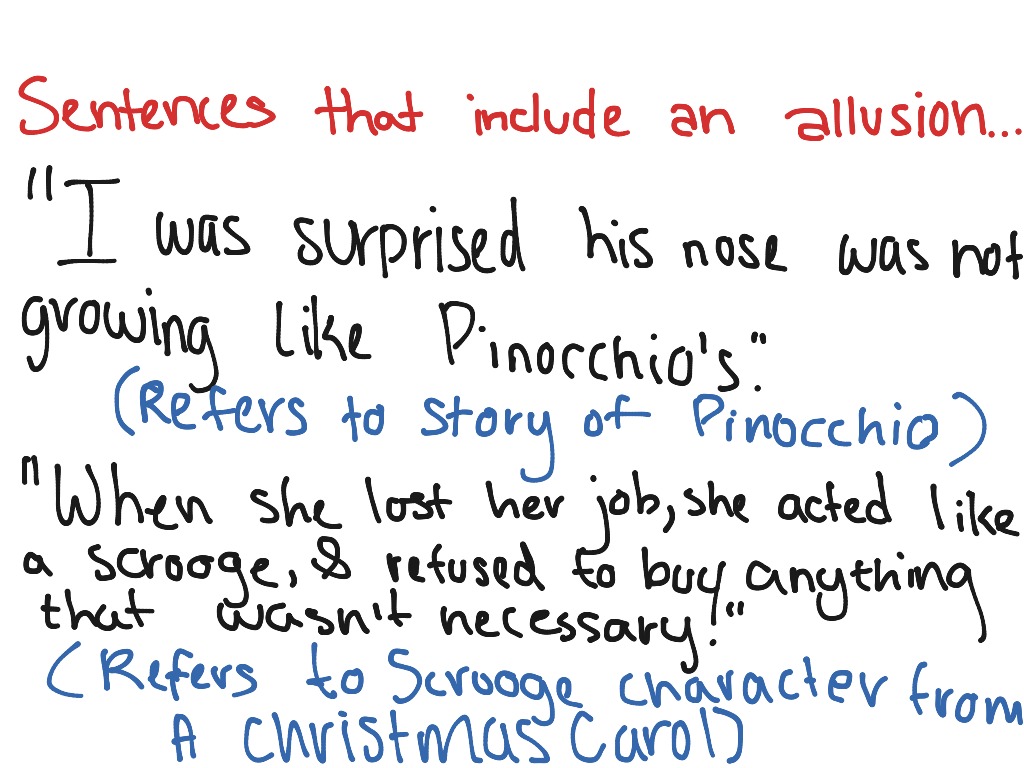 Sentences that include an allusion...
"I was surprised his nose was not
growing like Pinocchio's."
(Refers to story of Pinocchio)
"When she lost her job, she acted like
a scrooge, & refused to buy anything
that wasn't necessary."
(Refers to Scrooge character from
A Christmas Carol)